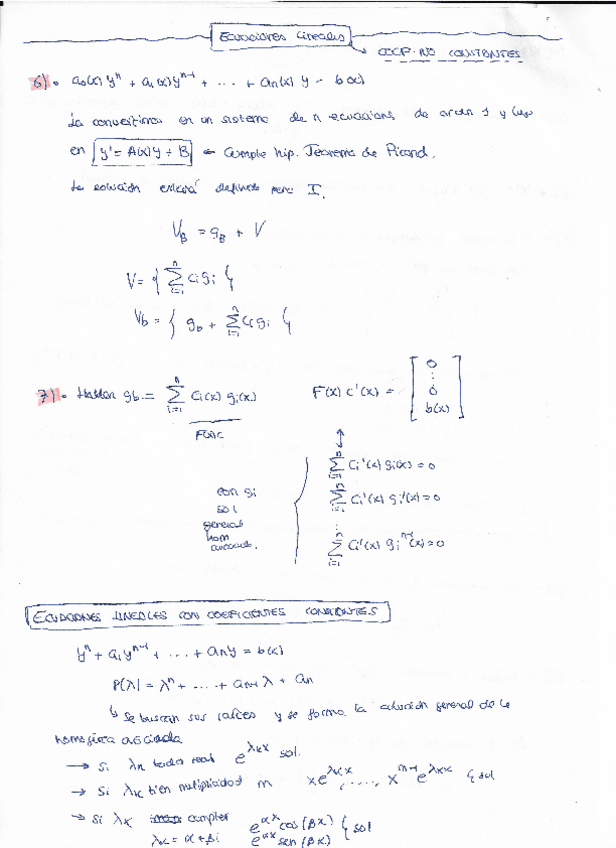 ECUACIONES LINEALES
→ COEF. NO CONSTANTES
6) • a₀(x) yⁿ + a₁(x) yⁿ⁻¹ + ... + an(x) y = b(x)
La convertimos en un sistema de n ecuaciones de orden 1 y
en y' = A(x)y + B ← Cumple hip. Teorema de Picard.
La solución estará definida para I.
V_B = g_B + V
V = { Σⁿᵢ₌₁ cᵢgᵢ }
V_b = { g_b + Σⁿᵢ₌₁ cᵢgᵢ }
7) • Hallar g_b = Σⁿᵢ₌₁ cᵢ(x) gᵢ(x) F(x) c'(x) = [ 0 ... 0 b(x) ]
↕
Σⁿᵢ₌₁ cᵢ'(x) gᵢ(x) = 0
con gi
Σⁿᵢ₌₁ cᵢ'(x) gᵢ'(x) = 0
sol
general
...
hom
asociada.
Σⁿᵢ₌₁ cᵢ'(x) gᵢⁿ⁻¹(x) = 0
ECUACIONES LINEALES CON COEFICIENTES CONSTANTES
yⁿ + a₁yⁿ⁻¹ + ... + any = b(x)
P(λ) = λⁿ + ... + an-1 λ + an
↳ se buscan sus raíces y se forma la solución general de la
homogénea asociada
→ Si λk real e^{λk x} sol.
→ Si λk tien multiplicidad m xe^{λk x}, ..., x^{m-1}e^{λk x} } sol
→ Si λk complex e^{αx} cos(βx) } sol
λk = α + βi e^{αx} sen(βx)